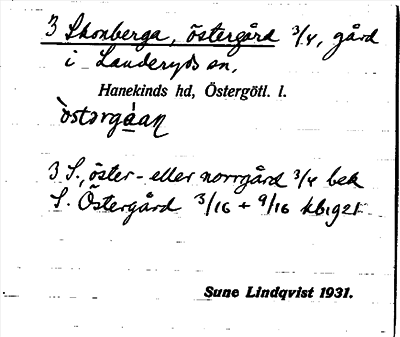 3 Skonberga, östergård 3/4, gård
i Landeryds sn,
Hanekinds hd, Östergötl. l.
östərgáan
3 S., öster- eller norrgård 3/4 bek
S. Östergård 3/16 + 9/16 kb1921
Sune Lindqvist 1931.